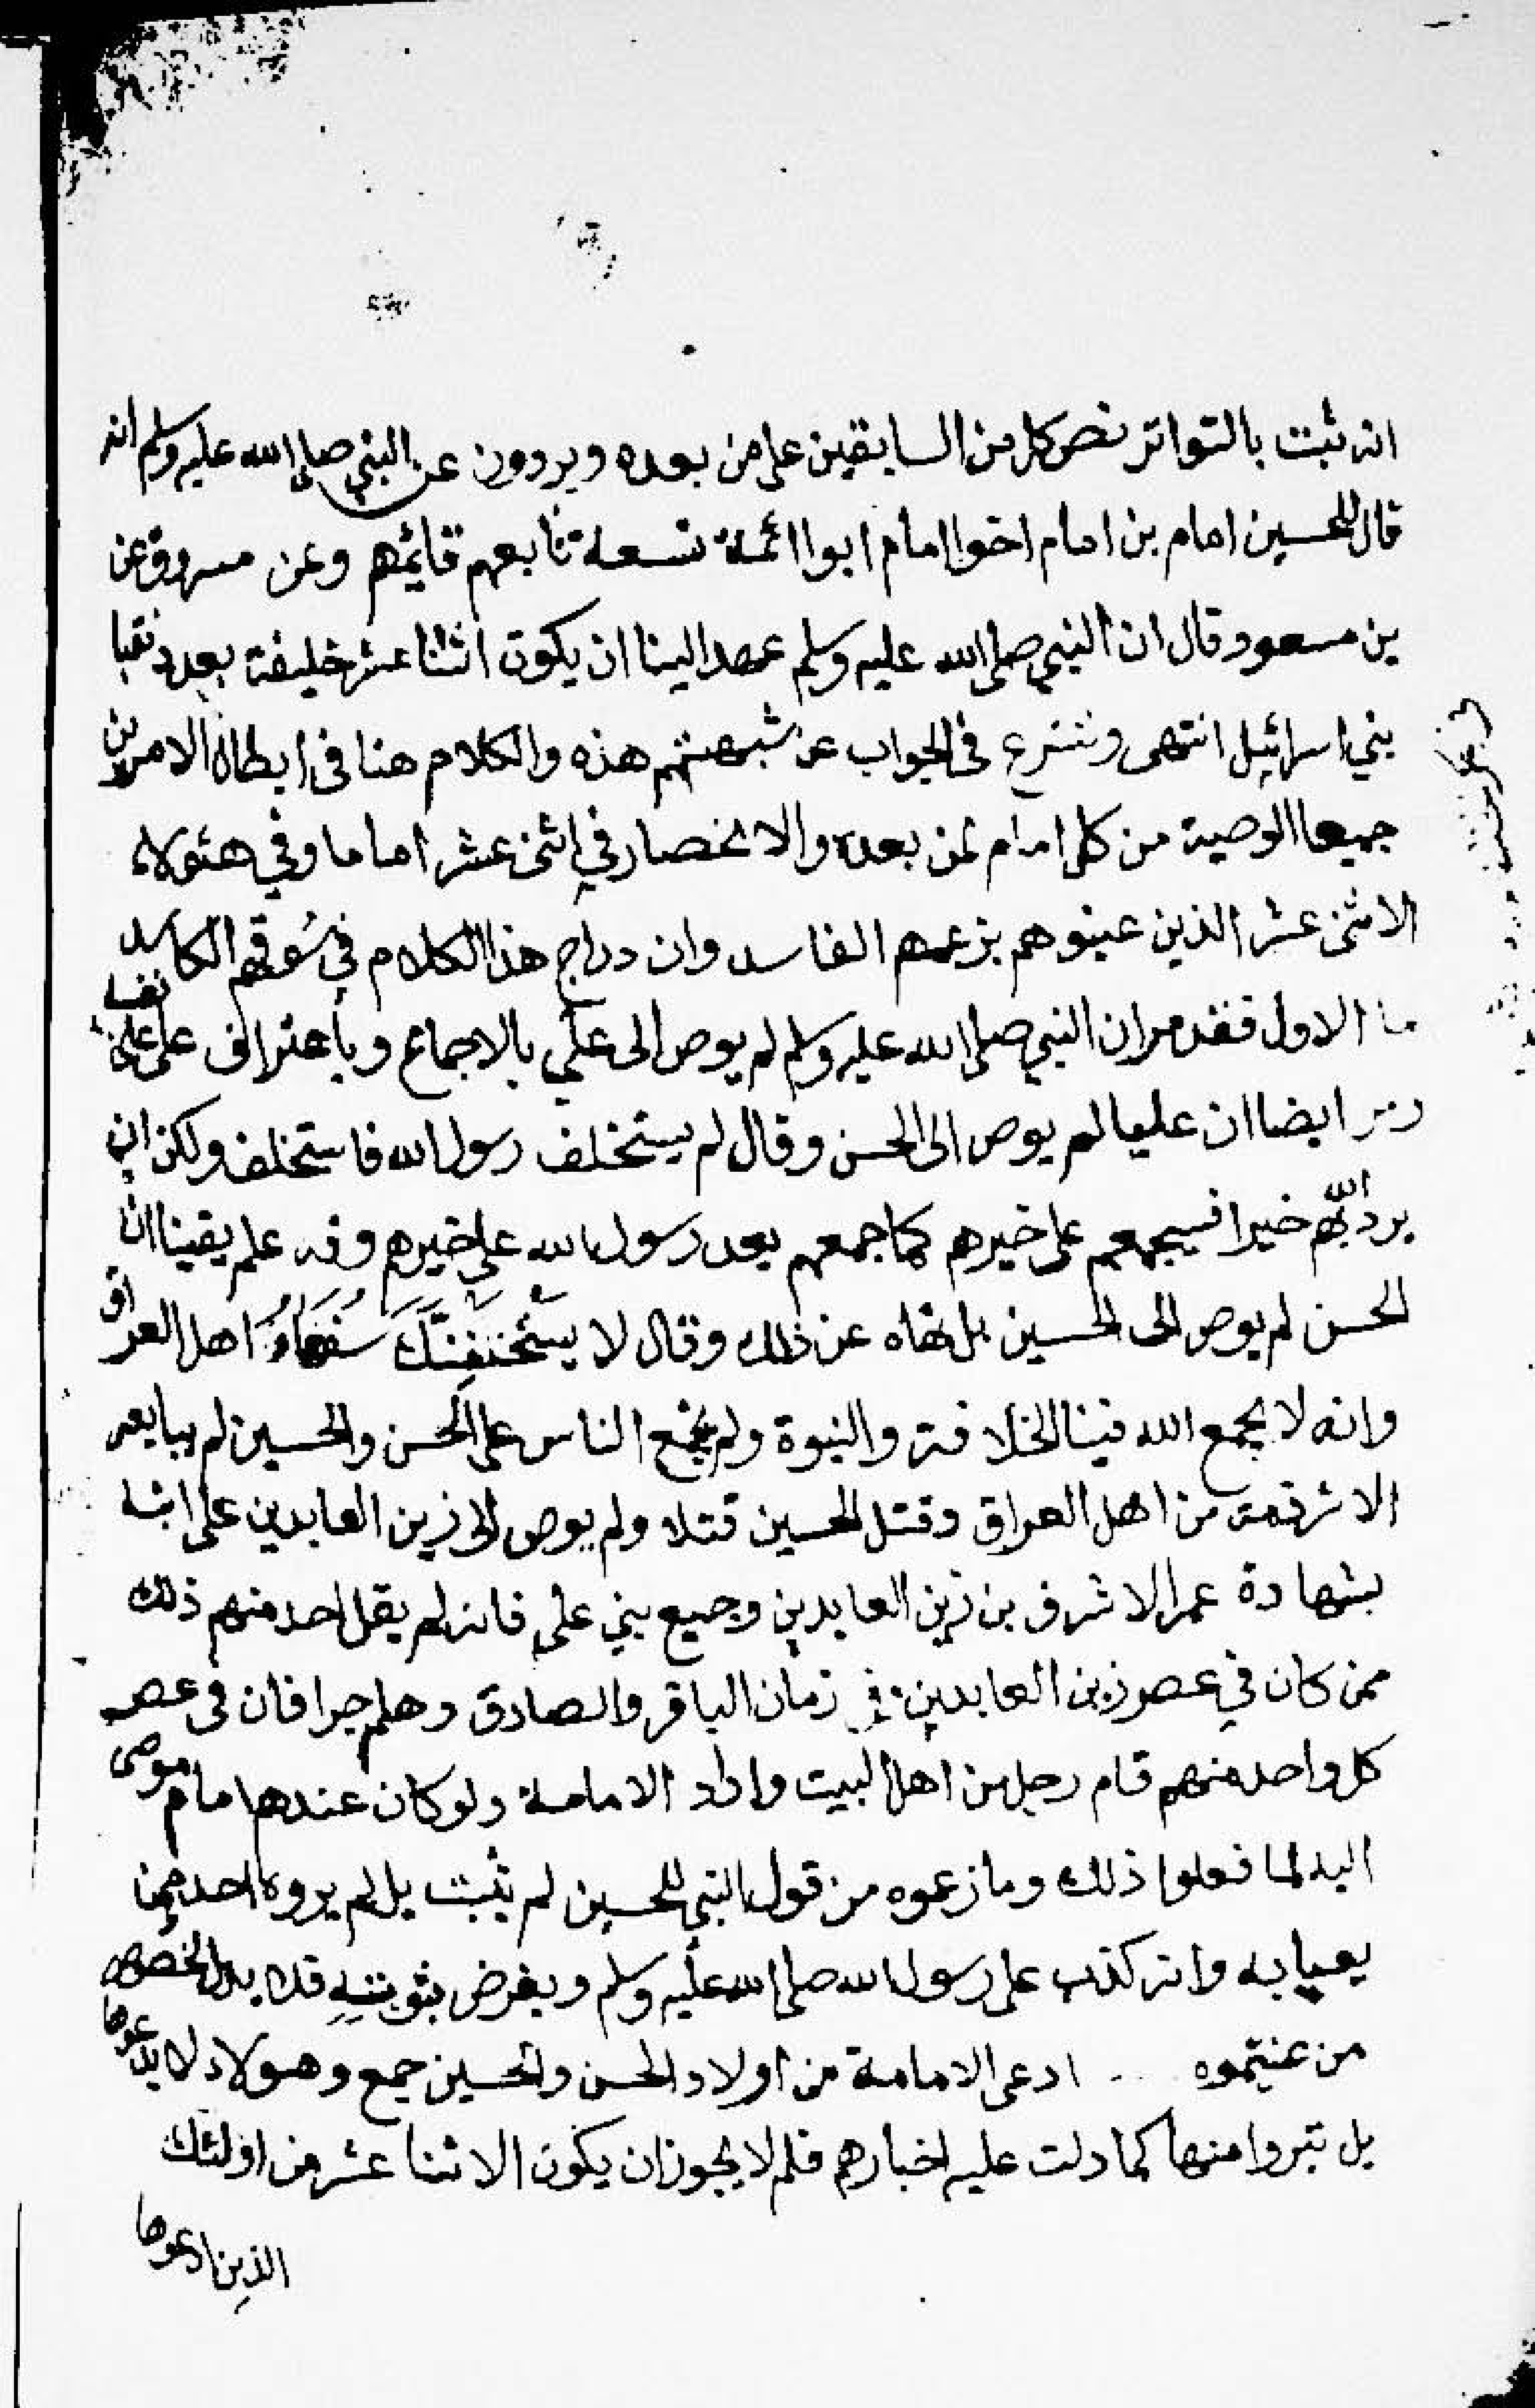 انه ثبت بالتواتر نص كل من السابقين على من بعده ويردون عن النبي صلى الله عليه وسلم انه
قال للحسين امام بن امام اخوا امام ابوا ائمة تسعة تابعهم قايمهم وعن مسروق عن
بن مسعود قال ان النبي صلى الله عليه وسلم عهد الينا ان يكون اثنا عشر خليفة بعدد نقبا
بني اسرائيل انتهى ونشرع في الجواب عن شبهتهم هذه والكلام هنا في ابطال الامرين
جميعا الوصية من كل امام لمن بعده والانحصار في اثنى عشر اماما وفي هئولاء
الاثنى عشر الذين عينوهم بزعمهم الفاسد وان دراج هذا الكلام في سوقهم الكاسد
ما الاول فقد مر ان النبي صلى الله عليه وسلم لم يوص الى علي بالاجماع وباعتراف علي على نفسه
ومر ايضا ان عليا لم يوص الى الحسن وقال لم يستخلف رسول الله فاستخلف ولكن ان
يرد الله بهم خيرا فسيجمعهم على خيرهم كما جمعهم بعد رسول الله على خيرهم وقد علم يقينا ان
الحسن لم يوص الى الحسين بل نهاه عن ذلك وقال لا يستخفنك سفهاء اهل العراق
وانه لا يجمع الله فينا الخلافة والنبوة ولم يجمع الناس على الحسن والحسين لم يبايعه
الا شرذمة من اهل العراق وقتل الحسين قتلا ولم يوص الى زين العابدين على ابنه
بشهادة عمر الاشرف بن زين العابدين وجميع بني علي فانه لم يقل احد منهم ذلك
ممن كان في عصر زين العابدين في زمان الباقر والصادق وهلم جرا فان في عصر
كل واحد منهم قام رجل من اهل البيت واراد الامامة ولو كان عندهم امام موصى
اليه لما فعلوا ذلك وما زعموه من قول النبي للحسين لم يثبت بل لم يروه احد ممن
يعبا به وانه كذب على رسول الله صلى الله عليه وسلم وبفرض ثبوته قد يدل الخصوص
من عنيتموه ادعى الامامة من اولاد الحسن والحسين جمع وهولاء لا يدعوها
بل تبروا منها كما دلت عليه اخبارهم فلم لا يجوز ان يكون الاثنا عشر من اولئك
الذين ادعوها